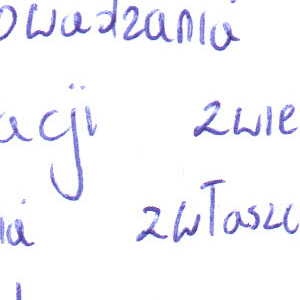 owadzania
acji zwie
ia zwłaszc